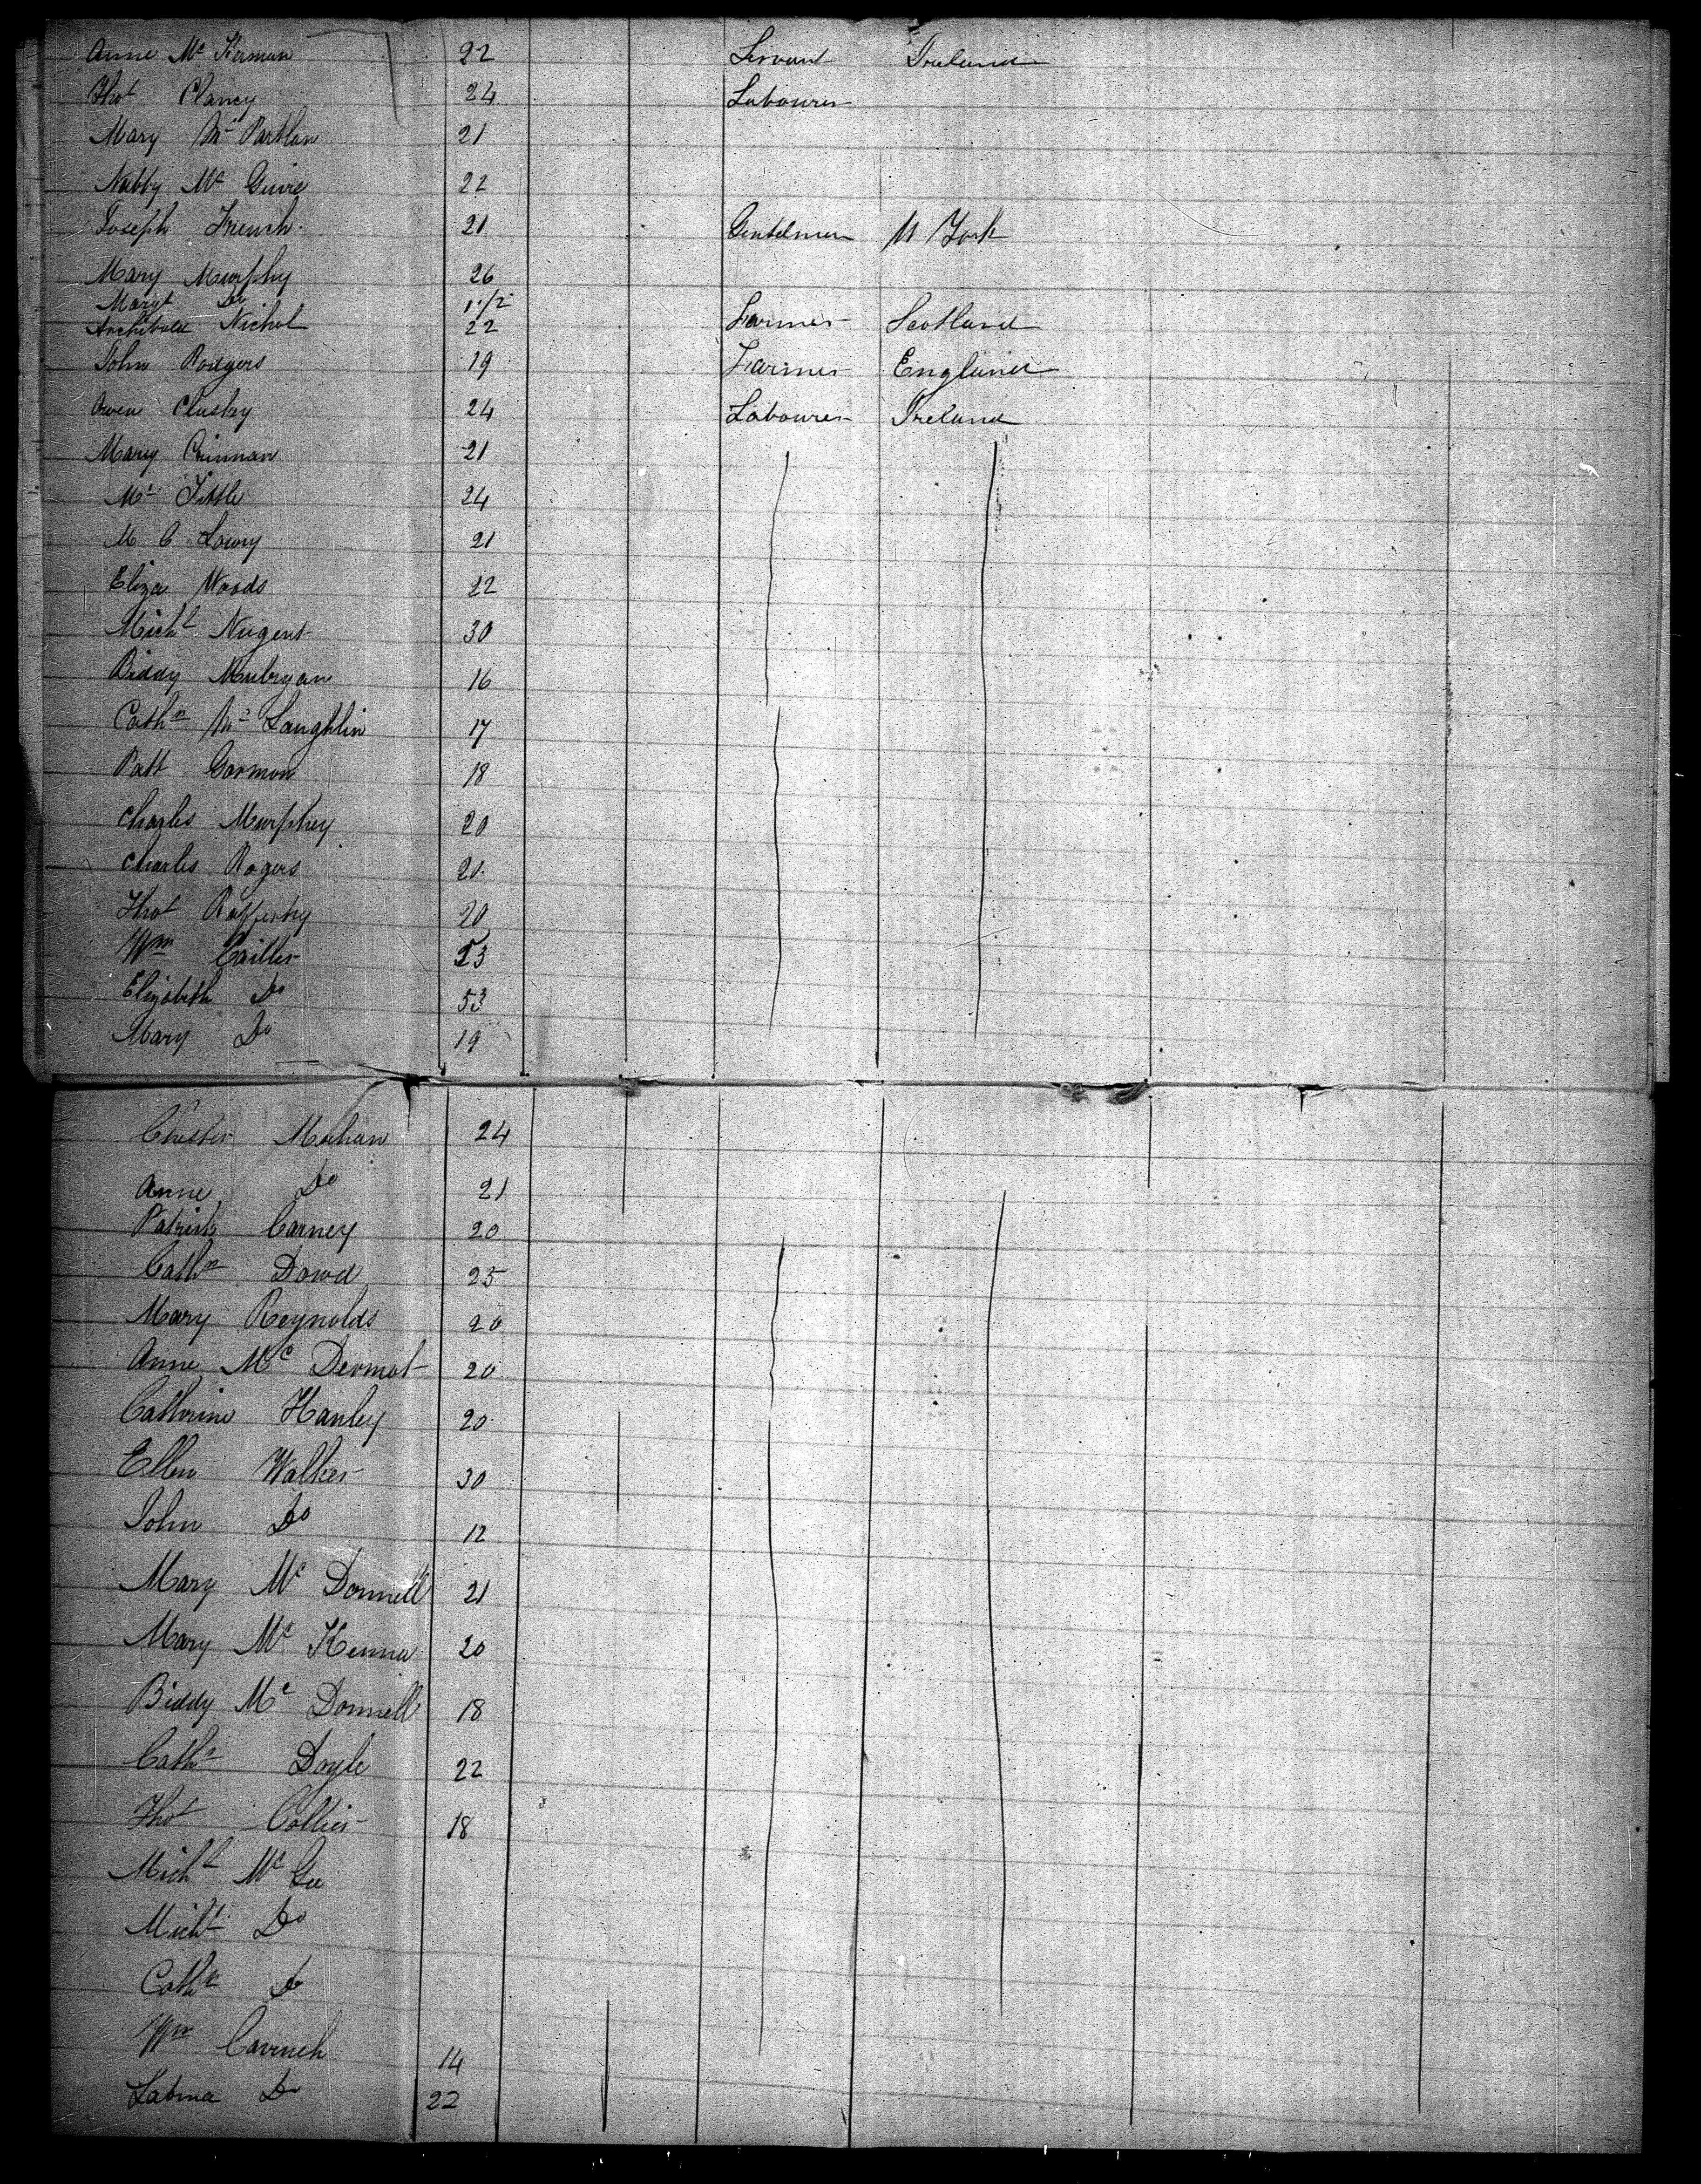 Anne Mc Kernan 22 Servant Ireland
Thos Clancy 24 Labourer
Mary Mc Partlan 21
Nabby Mc Guire 22
Joseph French 21 Gentelman N York
Mary Murphy 26
Margt Do 1 1/2
Archibald Nichol 22 Farmer Scotland
John Rodgers 19 Farmer England
Owen Clusky 24 Labourer Ireland
Mary 21
24
M C Lowry 21
Eliza Woods 22
Michl Nugent 30
Biddy Mulryan 16
Cathn Mc Laughlin 17
Patt Gorman 18
Charles Murphey 20
Charles Rogers 20
Thos Rafferty 20
Wm 53
Elizabeth Do 53
Mary Do 19
Mahan 24
Anne Do 21
Patrick Carney 20
Cathn Dowd 25
Mary Reynolds 20
Anne Mc Dermot 20
Catherine Hanley 20
Ellen Walker 30
John Do 12
Mary Mc Donnell 21
Mary Mc Kenna 20
Biddy Mc Donnell 18
Cathn Doyle 22
Thos Collier 18
Michl Mc Gee
Michl Do
Cathn Do
Wm 14
Do 22